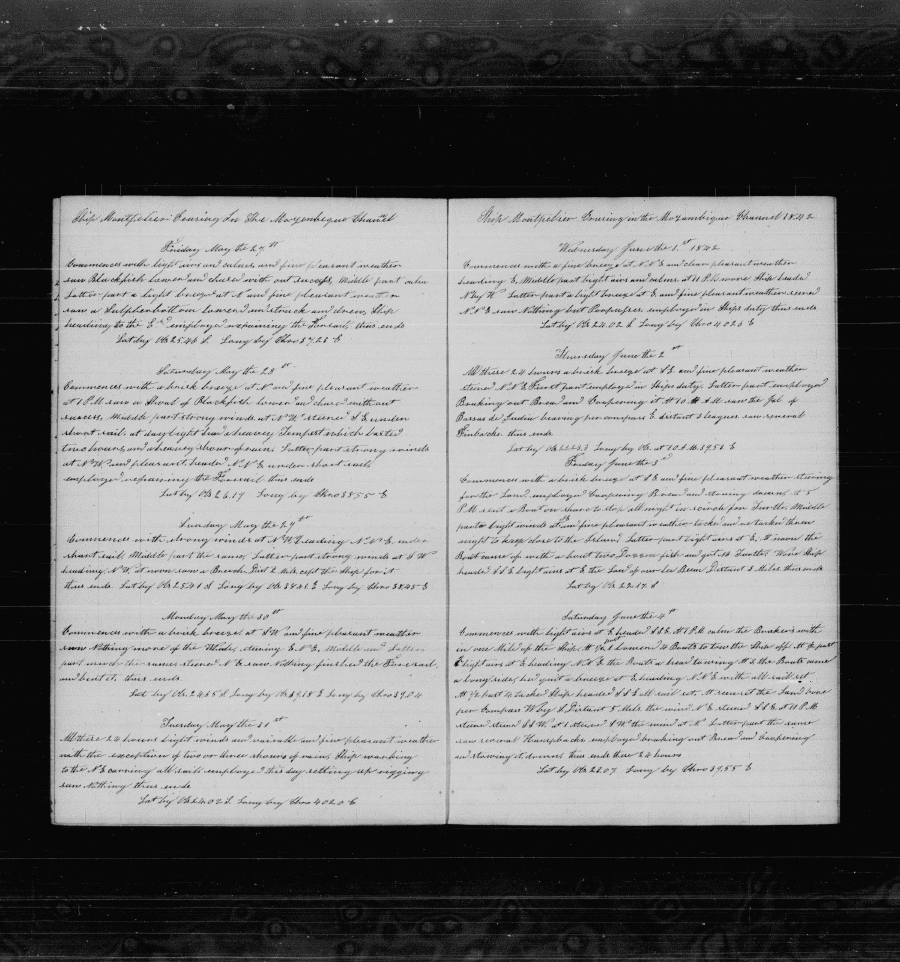 Ship Montpelier Cruising In The Mozambeque Channel
Friday May the 27th
Commences with light airs and calms and fine pleasant weather
saw Blackfish lowered and chased with out success, Middle part calm
Latter part a light breeze at N and fine pleasant weather
saw a Sulpherbottom lowered and struck and drew, Ship
heading to the E employed repairing the Foresail thus ends
Lat by Ob 25.46 S. Long by Chro 37.28 E
Saturday May the 28th
Commences with a brisk breeze at N and fine pleasant weather
at 1 P.M saw a Shoal of Blackfish lowered and chased without
success, Middle part strong winds at N.W steered S.E under
short sail. at daylight had a heavey Tempest which lasted
two hours and a heavey shower of rain. Latter part strong winds
at N.W and pleasant, headed N.N.E under short sail
employed repairing the Foresail thus ends
Lat by Ob 26.17 Long by Chro 38.55 E
Sunday May the 29th
Commences with strong winds at N.W heading N.N.E under
short sail Middle part the same, Latter part strong winds at S.W
heading N.W, at noon saw a Breach Dist 2 Mile kept the Ship for it
thus ends Lat by Ob 25.41 S Long by Ob 38.41 E Long by Chro 38.45 E
Monday May the 30th
Commences with a brisk breeze at S.W and fine pleasant weather
saw Nothing more of the Whale, steering E.N.E, Middle and Latter
part much the same steered N.E saw Nothing finished the Foresail
and bent it. thus ends
Lat by Ob 24.35 S. Long by Ob 39.18 E Long by Chro 39.04
Tuesday May the 31st
All these 24 hours light winds and variable and fine pleasant weather
with the exception of two or three showers of rain, Ship working
to the N.E carrying all sail employed this day setting up rigging
saw Nothing thus ends
Lat by Ob 24.02 S. Long by Chro 40.20 E
Ship Montpelier Cruising in the Mozambique Channel 1842
Wednesday June the 1st 1842
Commences with a fine breeze at N.N.E and clear pleasant weather
heading E, Middle part light airs and calms at 11 P.M wore Ship headed
N by W Latter part a light breeze at E and fine pleasant weather steered
N.N.E saw Nothing but Porpoises employed in Ships duty thus ends
Lat by Ob 24.02 S Long by Chro 40.25 E
Thursday June the 2nd
All these 24 hours a brisk breeze at S.E and fine pleasant weather
steered N.N.E First part employed in Ships duty. Latter part employed
Breaking out Bread and Coopering it At 10 A.M saw the Isl of
Bassas de India bearing per compass E distant 3 leagues saw several
Finbacks thus ends
Lat by Ob 22.23 S Long by Ob at 10 A.M. 39.58 E
Friday June the 3rd
Commences with a brisk breeze at S.E and fine pleasant weather steering
for the Land employed Coopering Bread and stowing down. at 5
P.M sent a Boat on shore to stop all night in search for Turtle, Middle
part light winds at and fine pleasant weather tacked and as tacked through
night to keep close to the Island Latter part light airs at E. at noon the
Boat came off with a bout two Dozen fish and got No Turtle. Wore Ship
headed S.S.E light airs at E the Land of our Lee Beam Distant 3 Miles thus ends
Lat by 22.17 S
Saturday June the 4th
Commences with light airs at E headed S.S.E. At 1 P.M calm the Breakers with
in one Mile of the Ship. At ½ past 1 lowered 4 Boats to tow the Ship off At ½ past
2 light airs at E heading N.N.E the Boats a head towing At 3 the Boats came
a long side, had quite a breeze at E heading N.N.E with all sail set
At ½ past 4 tacked Ship headed S.S.E all sail set. At sunset the Land bore
per Compass W by S, Distant 5 Mile the wind N.E steered S.S.E at 11 P.M
steered S.S.W at 1 steered S.W the wind at N Latter part the same
saw several Humpbacks employed breaking out Bread and Coopering
and stowing it down thus ends these 24 hours
Lat by Ob 23.07 Long by Chro 39.55 E